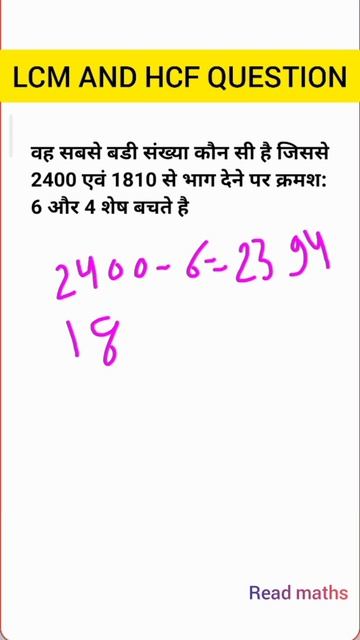 LCM AND HCF QUESTION
वह सबसे बडी संख्या कौन सी है जिससे
2400 एवं 1810 से भाग देने पर क्रमश:
6 और 4 शेष बचते है
2400-6=2394
18
Read maths